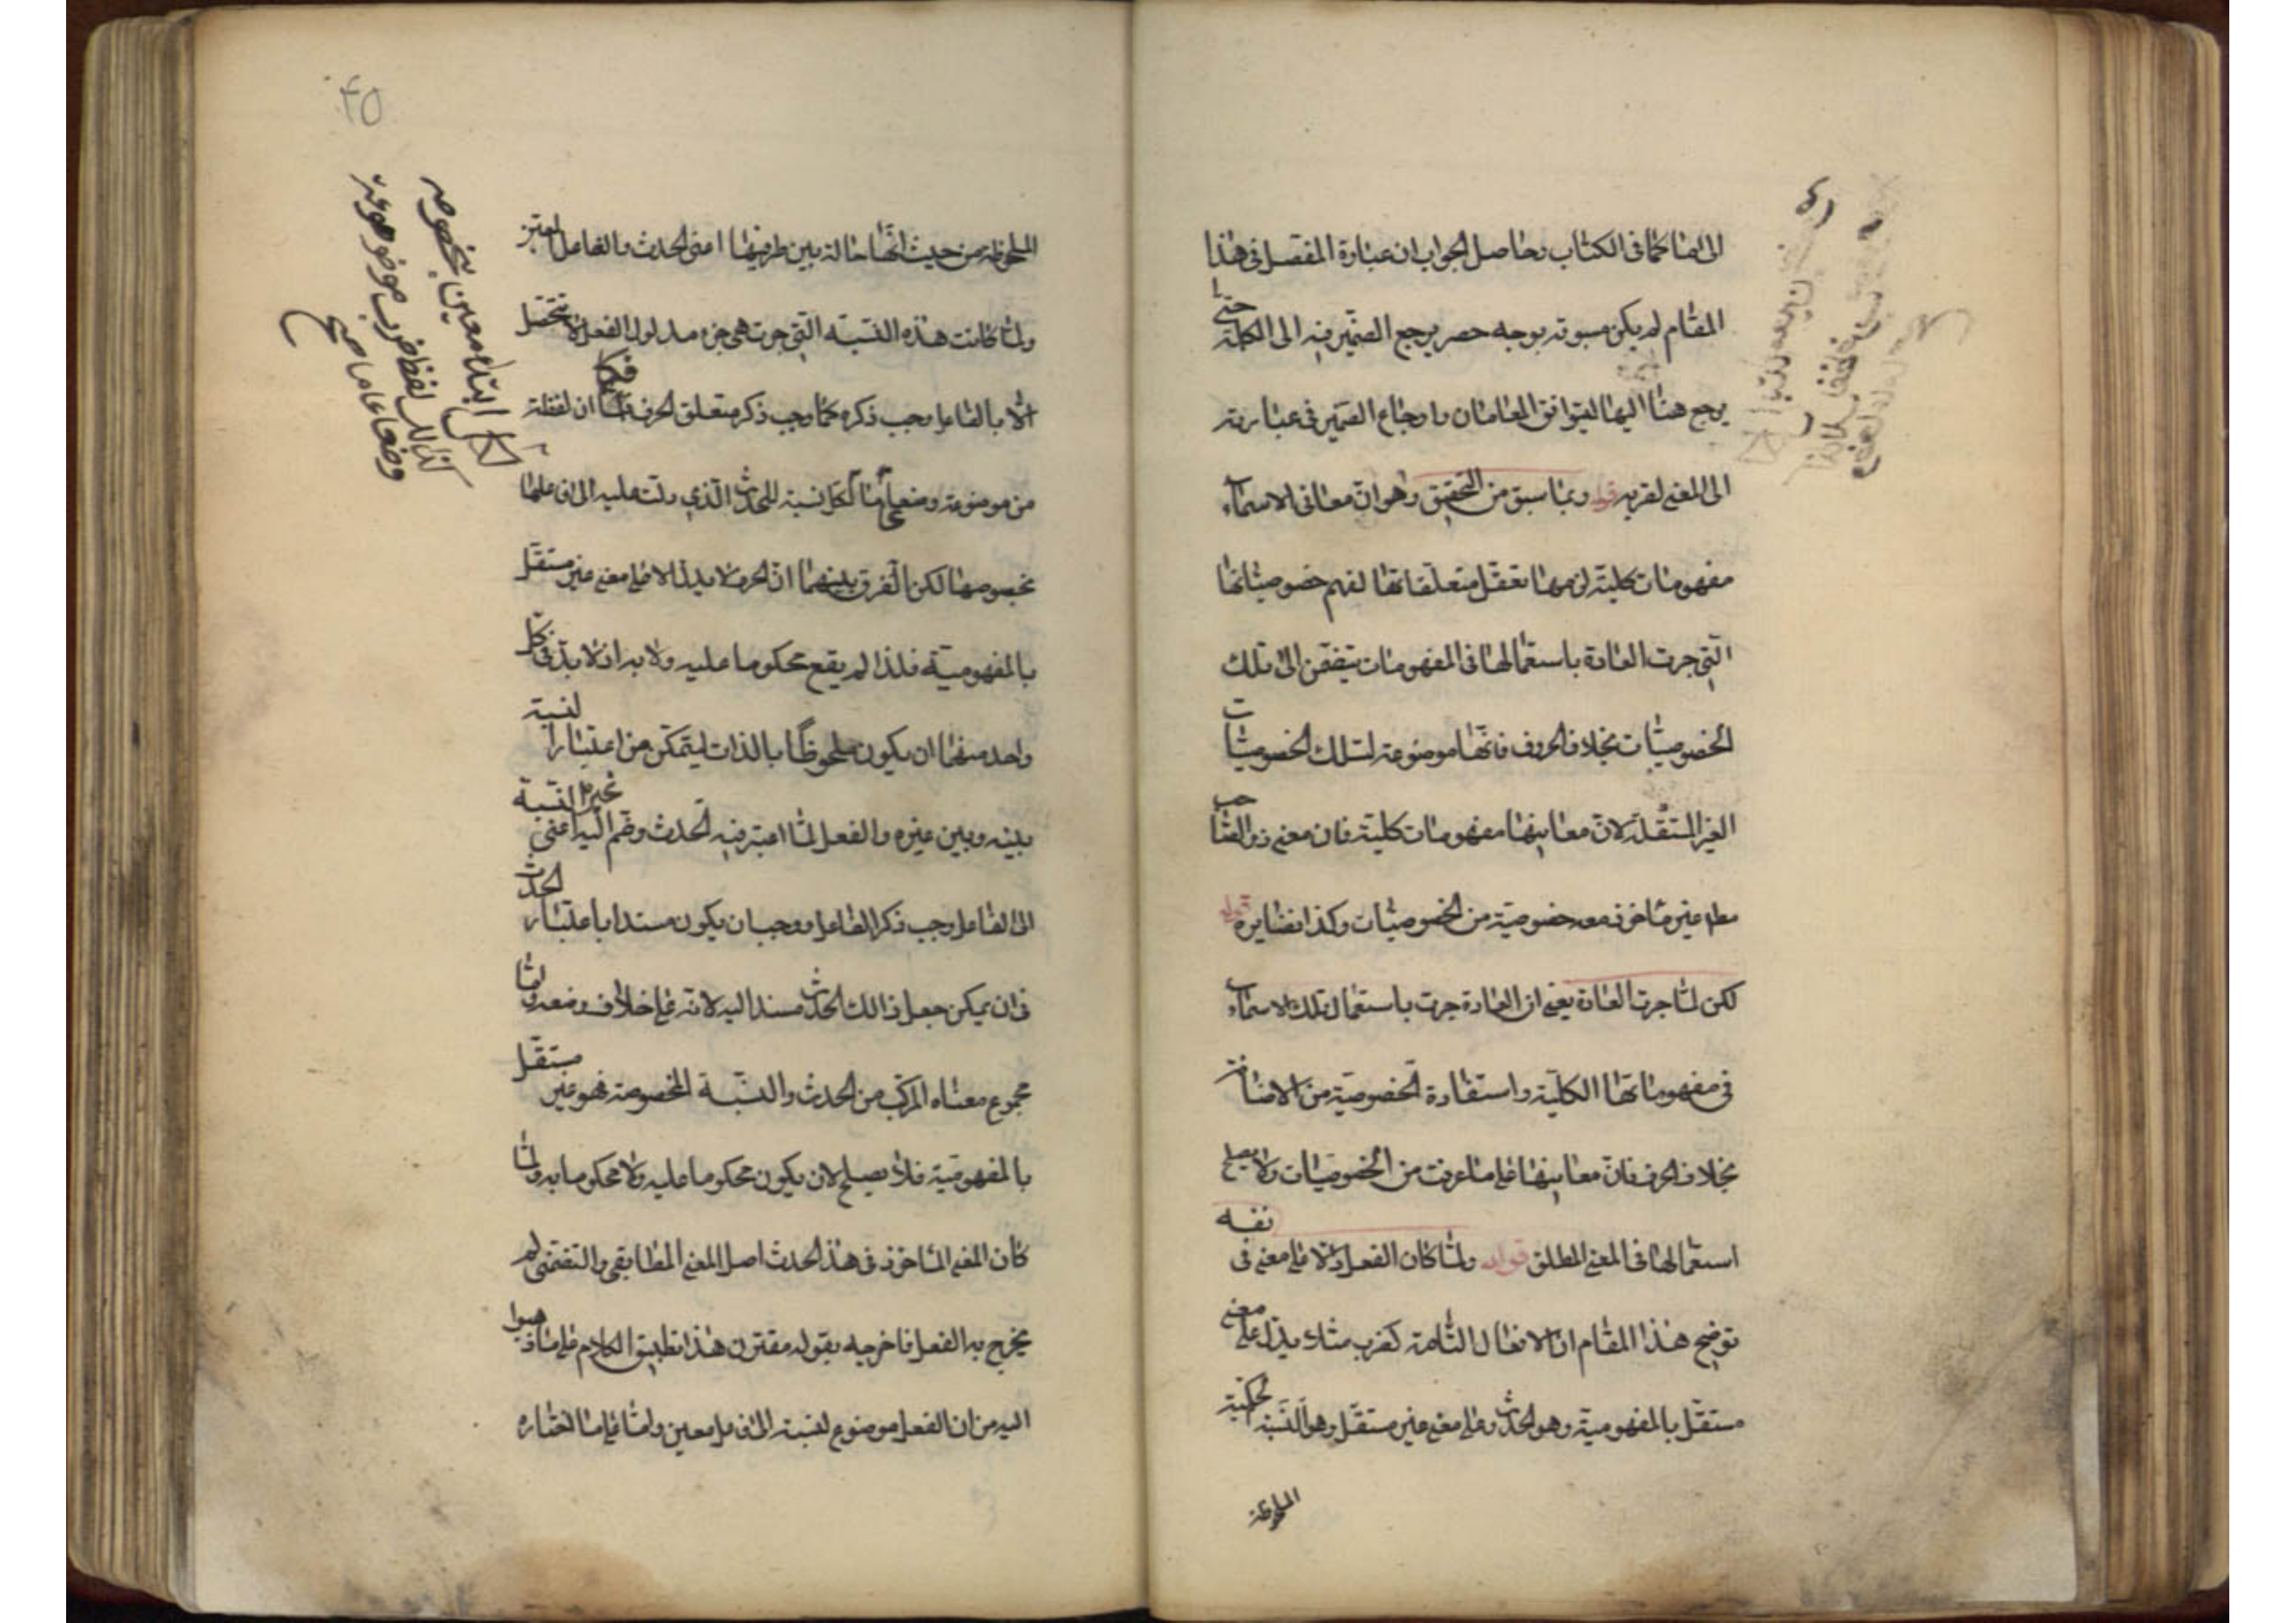 الى الضا كما فى الكتاب وحاصل الجواب ان عبارة المفصل فى هذا
المقام لم يكن مسبوقة بوجه حصر يرجع الضمير فيه الى الكلمة حتى
يرجع هنا اليها ليتوافق المقامان وارجاع الضمير فى عبارته
الى المعنى لقربه قوله وبما سبق من التحقيق وهو ان معانى الاسماء
مفهومات كلية لزمها تعقل متعلقاتها لفهم خصوصياتها
التى جرت العادة باستعمالها فى المفهومات تلك
الخصوصيات بخلاف الحروف فانها موضوعة لتلك الخصوصيات
الغير المستقلة لان معاينها مفهومات كلية فان معنى ذو الصاحب
مط غير ماخوذ معه خصوصية من الخصوصيات وكذا نضايره قوله
لكن لما جرت العادة يعنى ان العادة جرت باستعمال تلك الاسماء
فى مفهوماتها الكلية واستفادة الخصوصية من الاضافة
بخلاف الحرف فان معاينها على ما عرفت من الخصوصيات ولا يصلح
استعمالها فى المعنى المطلق قوله ولما كان الفعل دالا على معنى فى نفسه
توضيح هذا المقام ان الافعال التامة كضرب مثلا يدل على معنى
مستقل بالمفهومية وهو الحدث وعلى معنى غير مستقل وهو النسبة الحكمية
الملحوظة
۴۵
الملحوظة من حيث انها حالة بين طرفيها اعنى الحدث والفاعل المعتبر
ولما كانت هذه النسبة التى جرت هى جزء مدلول الفعل لا تتحصل
الا بالفاعل وجب ذكره كما وجب ذكر متعلق الحرف فكما ان لفظة
من موضوعة وضعا عاما لكل نسبة للحدث الذى دلت عليه الى فاعل ما
بخصوصها لكن الفرق بينهما ان الحرف لا يدل الا على معنى غير مستقل
بالمفهومية فلذا لم يقع محكوما عليه ولا به اذ لا بد فى كل
واحد منهما ان يكون ملحوظا بالذات ليتمكن من اعتبار النسبة
بينه وبين غيره والفعل لما اعتبر فيه الحدث وضم اليه غيره اعنى النسبة
الى الفاعل وجب ذكر الفاعل ووجب ان يكون مسندا باعتبار الحدث
فان يمكن جعل ذالك الحدث مسندا اليه لانه على خلاف وضعه واما
مجموع معناه المركب من الحدث والنسبة المخصوصة فهو غير مستقل
بالمفهومية فلا يصلح لان يكون محكوما عليه ولا محكوما به ولما
كان المعنى الماخوذ فى هذا الحدث اصل المعنى المطابقى والتضمنى لم
يخرج به الفعل فاخرجه بقوله مقترن هذا تطبيق الكلام على ما ذهبوا
اليه من ان الفعل موضوع لنسبة الى فاعل معين واما على ما اختاره
لكل ابتداء معين بخصوصه
كذالك لفظ ضرب موضوعة
وضعا عاما صح